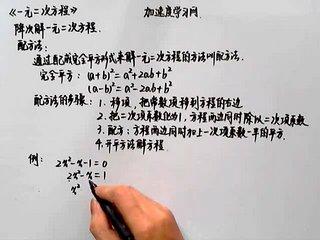 《一元二次方程》 加速度学习网
降次解一元二次方程.
配方法:
通过配成完全平方形式来解一元二次方程的方法叫配方法.
完全平方: (a+b)²=a²+2ab+b²
(a-b)²=a²-2ab+b²
配方法的步骤: 1. 移项, 把常数项移到方程的右边
2. 把二次项系数化为1, 方程两边同时除以二次项系数
3. 配方: 方程两边同时加上一次项系数一半的平方.
4. 开平方法解方程
例: 2x²-x-1=0
2x²-x=1
x²